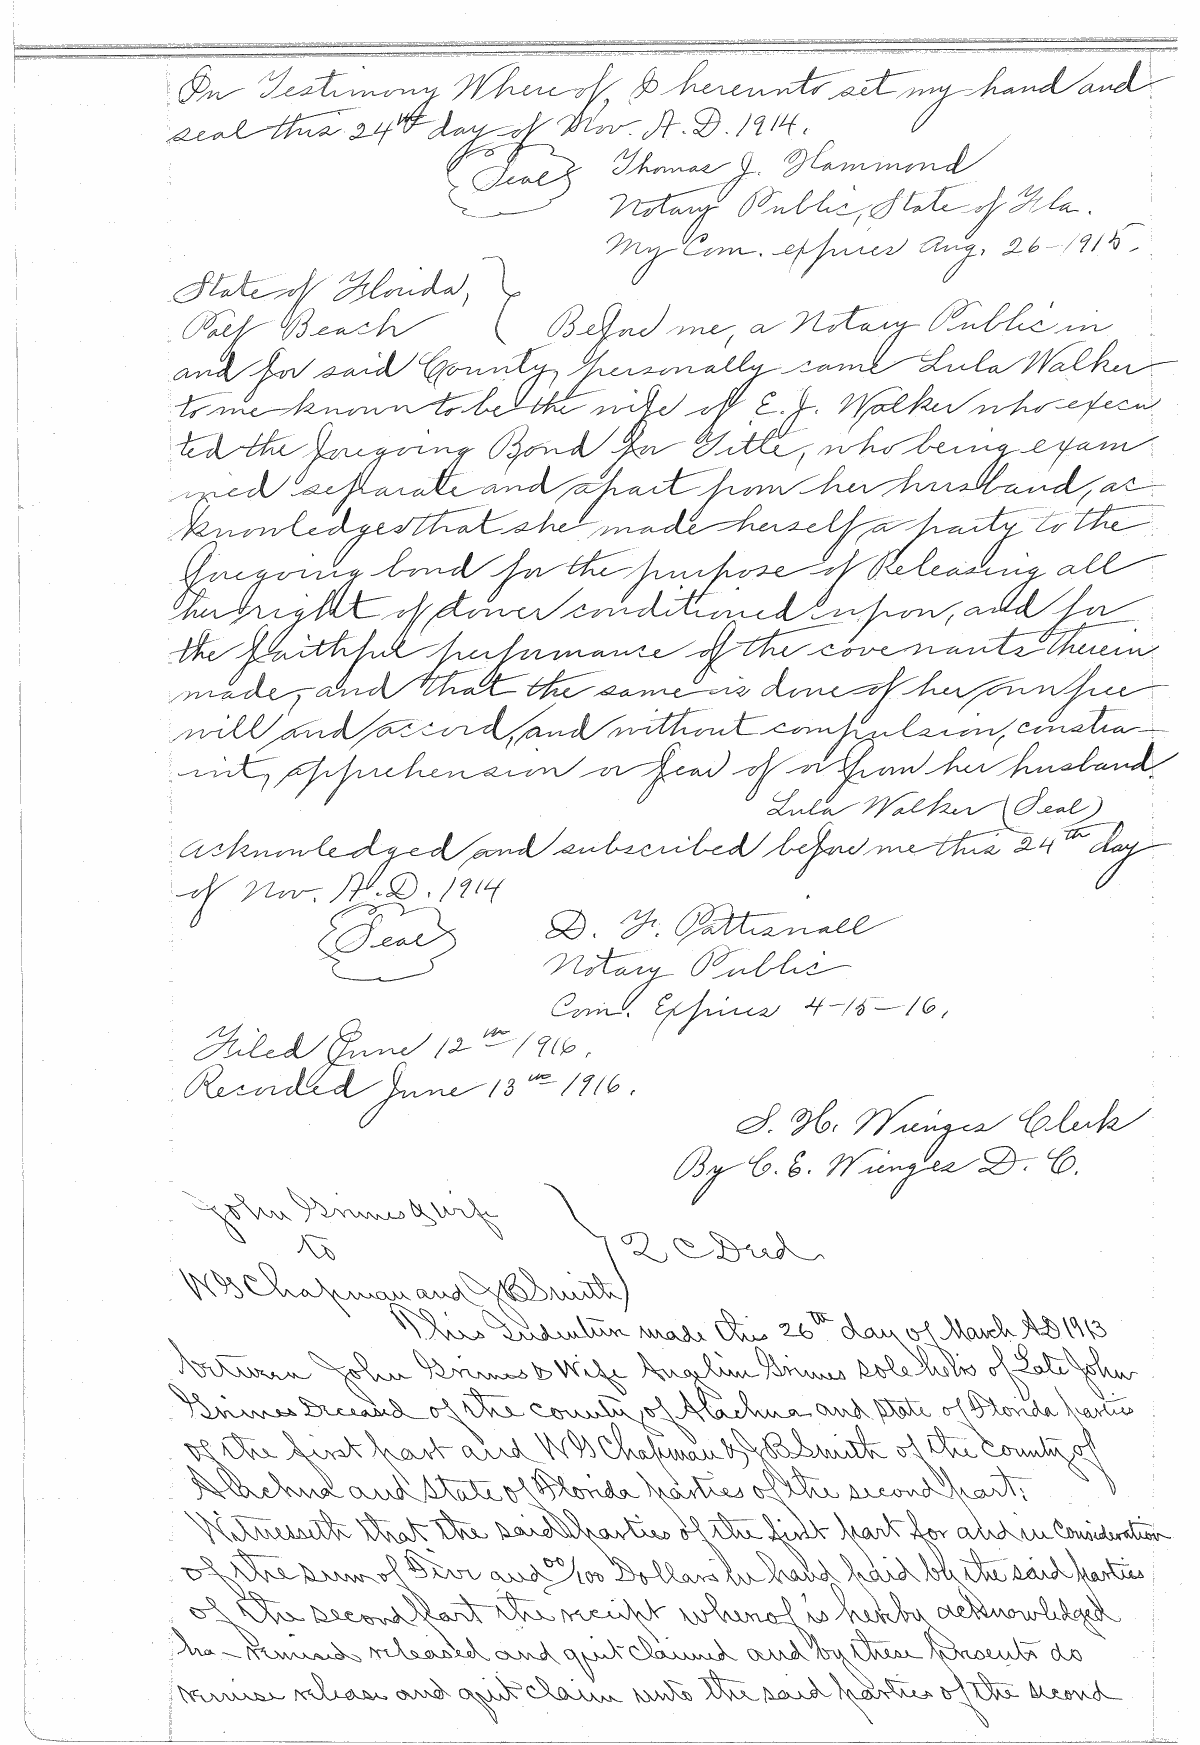 In Testimony Where of, I hereunto set my hand and
seal this 24th day of Nov. A. D. 1914.
(Seal) Thomas J. Hammond
Notary Public, State of Fla.
My Com. expires Aug. 26-1915.
State of Florida,
Palf Beach } Before me, a Notary Public in
and for said County, personally came Lula Walker
to me known to be the wife of E. J. Walker who execu
ted the foregoing Bond for Title, who being exam
ined separate and apart from her husband, ac
knowledges that she made herself a party to the
foregoing bond for the purpose of Releasing all
her right of dower conditioned upon, and for
the faithful performance of the covenants therein
made, and that the same is done of her own free
will and accord, and without compulsion, constra-
int, apprehension or fear of or from her husband.
Lula Walker (Seal)
Acknowledged and subscribed before me this 24th day
of Nov. A. D. 1914
(Seal) D. F. Pattisnall
Notary Public
Com. Expires 4-15-16,
Filed June 12th 1916.
Recorded June 13th 1916.
S. H. Wienges Clerk
By C. E. Wienges D. C.
John Grimes & Wife
to } 2 C Deed
W G Chapman and J B Smith
This Indenture made this 26th day of March AD 1913
between John Grimes & Wife Anglin Grimes sole heirs of Late John
Grimes Deceased of the county of Alachua and State of Florida parties
of the first part and W G Chapman & J B Smith of the county of
Alachua and State of Florida parties of the second part;
Witnesseth that the said parties of the first part for and in Consideration
of the sum of Five and 00/100 Dollars in hand paid by the said parties
of the second part the receipt whereof is hereby acknowledged
ha- remised released and quit claimed and by these presents do
remise release and quit claim unto the said parties of the second